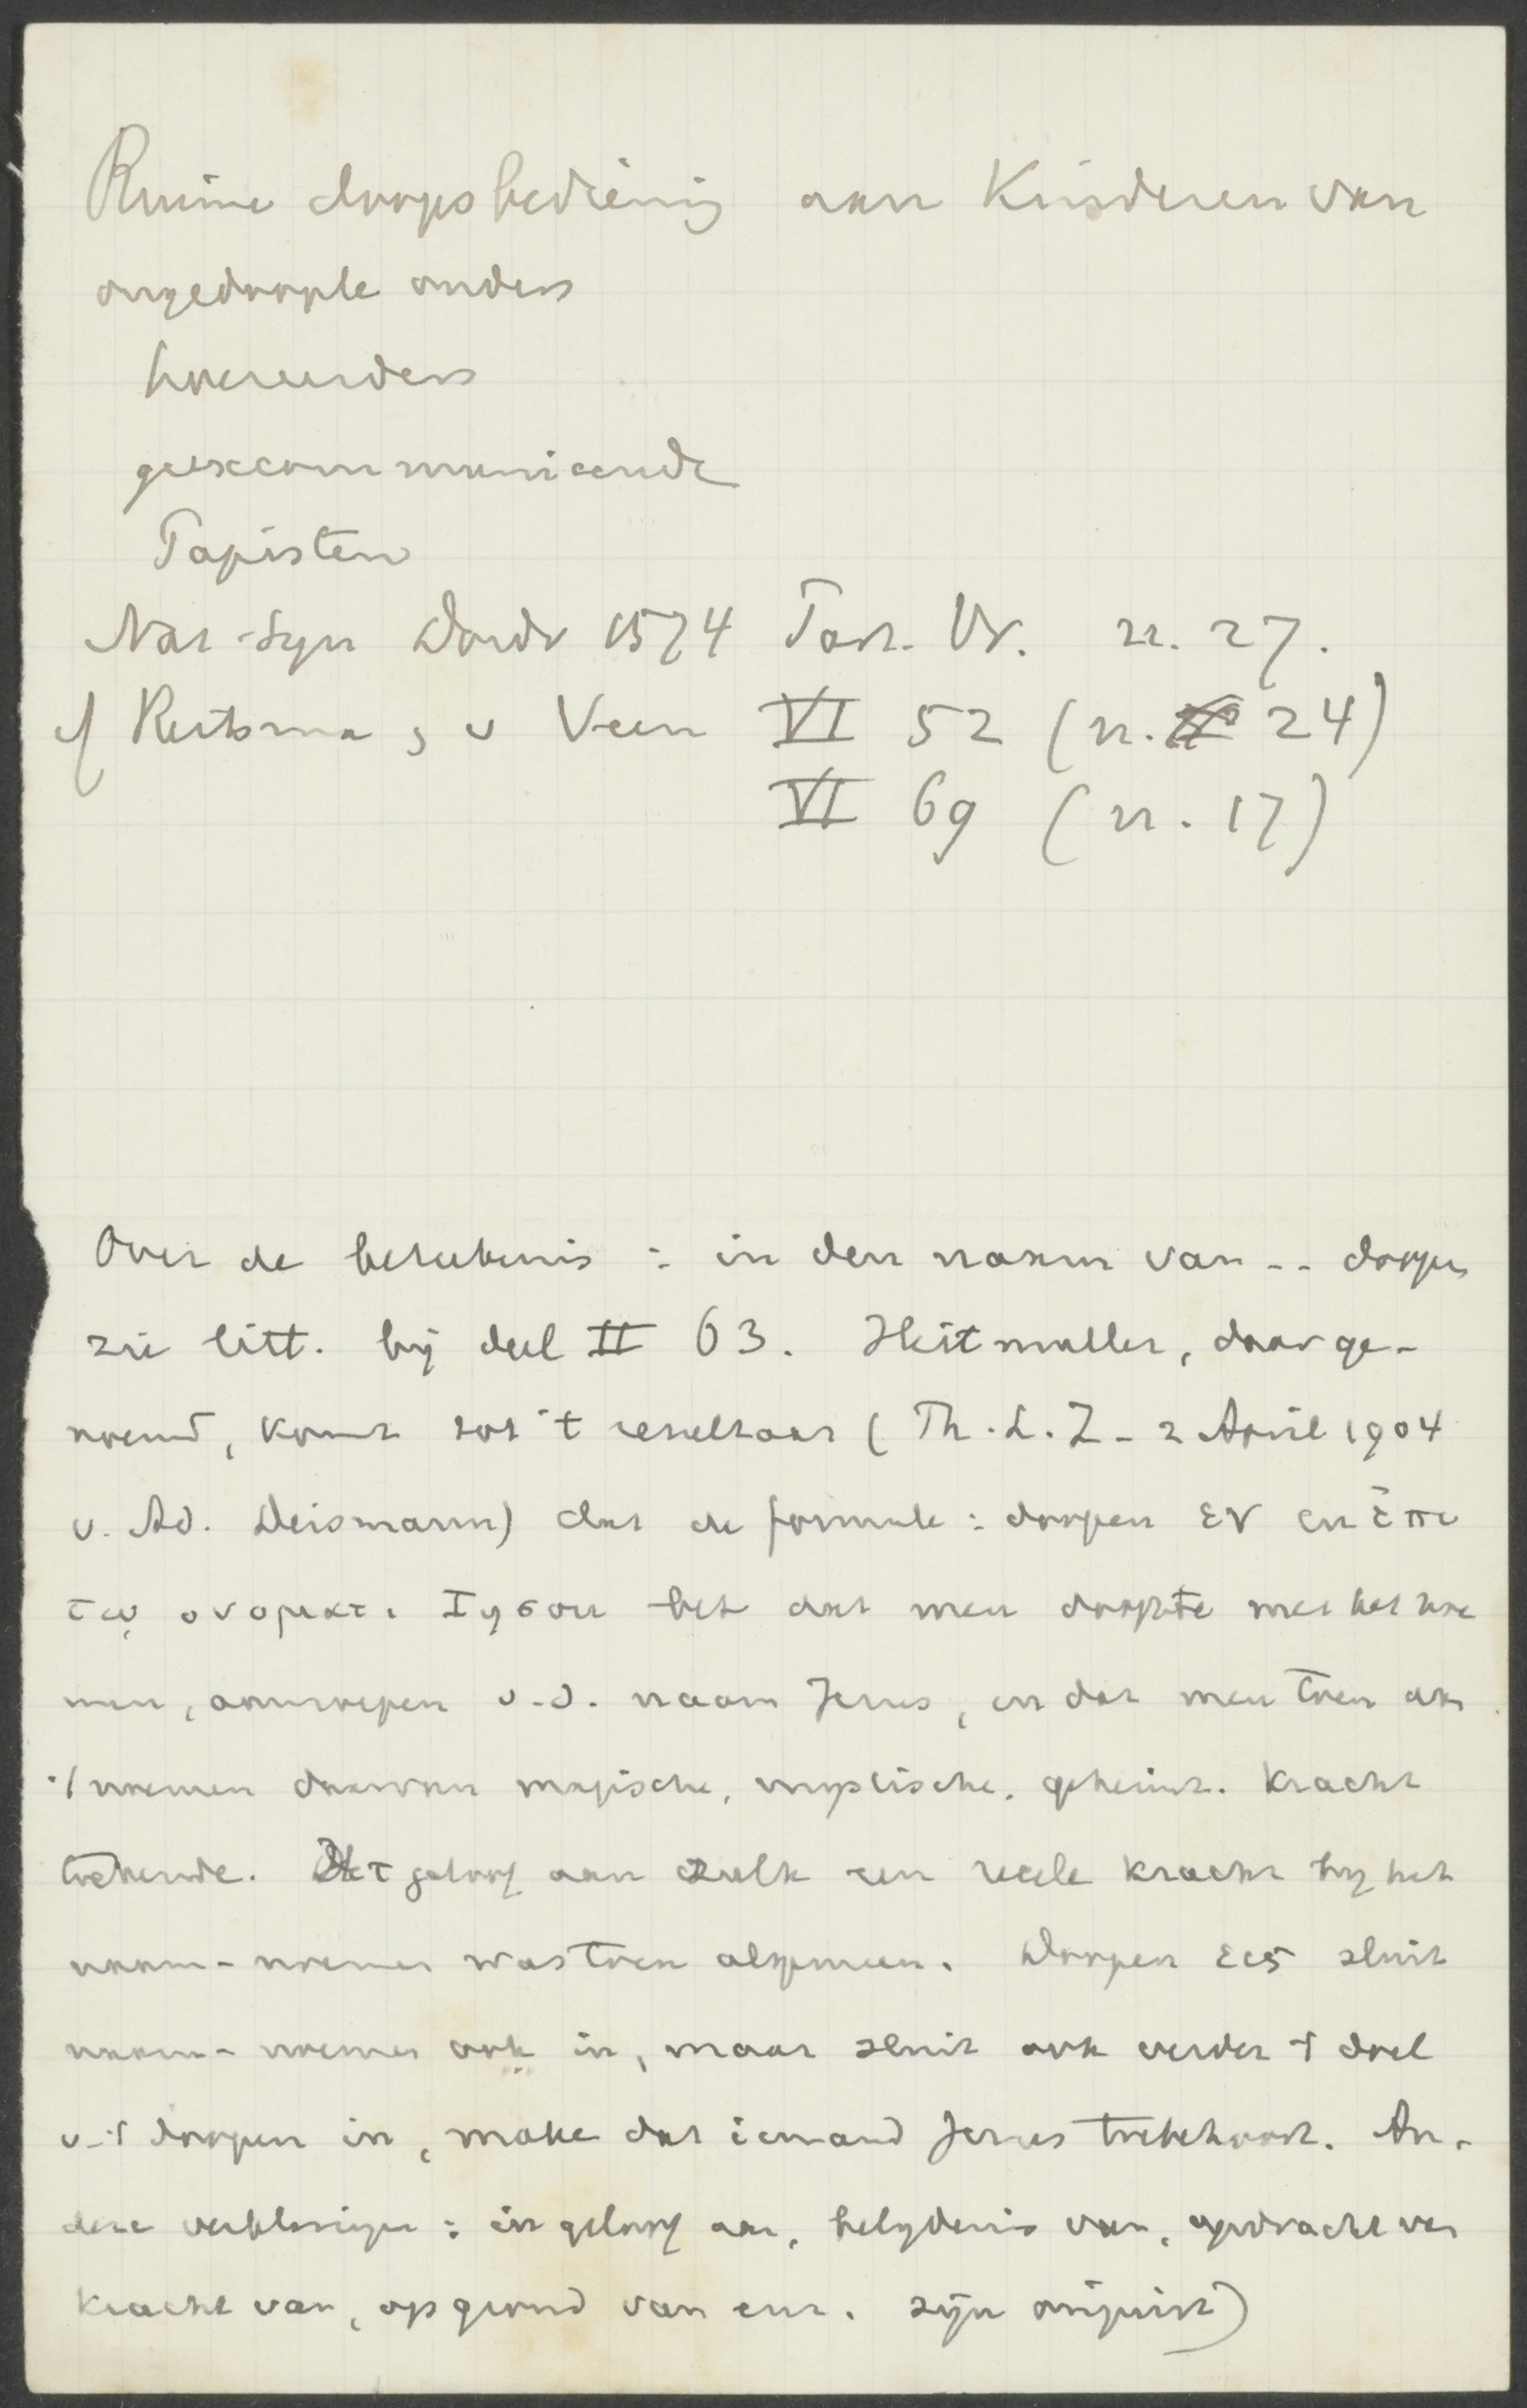 Ruime doopsbediening aan Kinderen van
ongedoopte ouders
hoereerders
geexcommuniceerde
Papisten
Nat. Syn Dordr 1574 Part. Vr. n. 27.
cf Reitsma, v Veen VI 52 (n. 24)
VI 69 (n. 17)
Over de beteekenis : in den naam van -- doopen
zie litt. bij deel II 63. Heitmuller, daar ge-
noemd, komt tot 't resultaat (Th. L. Z - 2 April 1904
v. Ad. Deismann) dat de formule : doopen εν en επι
τῳ ονοματι Ιησου bet dat men doopte met het noe
men, aanroepen v. d. naam Jezus, en dat men toen aan
't noemen daarvan magische, mystische, geheimz. kracht
toekende. Het geloof aan zulk een reëele kracht bij het
naam-noemen was toen algemeen. Doopen εις sluit
naam-noemen ook in, maar sluit ook verder 't doel
v. 't doopen in, make dat iemand Jezus toebehoort. An-
dere verklaringen : in geloof aan, belijdenis van, opdracht van
kracht van, op grond van enz. zijn onjuist)